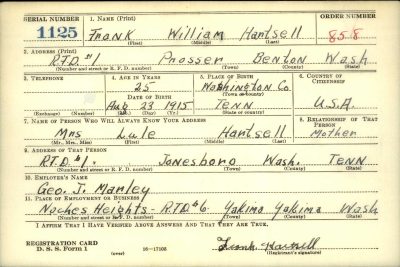 SERIAL NUMBER 1. NAME (Print) ORDER NUMBER
1125 Frank William Hartsell 858
(First) (Middle) (Last)
2. ADDRESS (Print)
R.T.D. #1 Prosser Benton Wash
(Number and street or R. F. D. number) (Town) (County) (State)
3. TELEPHONE 4. AGE IN YEARS 5. PLACE OF BIRTH 6. COUNTRY OF CITIZENSHIP
25 Washington Co.
DATE OF BIRTH (Town or county)
Aug 23 1915 Tenn U.S.A.
(Exchange) (Number) (Mo.) (Day) (Yr.) (State or country)
7. NAME OF PERSON WHO WILL ALWAYS KNOW YOUR ADDRESS 8. RELATIONSHIP OF THAT PERSON
Mrs Lule Hartsell Mother
(Mr., Mrs., Miss) (First) (Middle) (Last)
9. ADDRESS OF THAT PERSON
R.T.D. #1. Jonesboro Wash. Tenn
(Number and street or R. F. D. number) (Town) (County) (State)
10. EMPLOYER'S NAME
Geo. J. Marley
11. PLACE OF EMPLOYMENT OR BUSINESS
Naches Heights - R.T.D. #6 Yakima Yakima Wash
(Number and street or R. F. D. number) (Town) (County) (State)
I AFFIRM THAT I HAVE VERIFIED ABOVE ANSWERS AND THAT THEY ARE TRUE.
REGISTRATION CARD
D. S. S. Form 1 (over) 16—17105 (Registrant's signature)